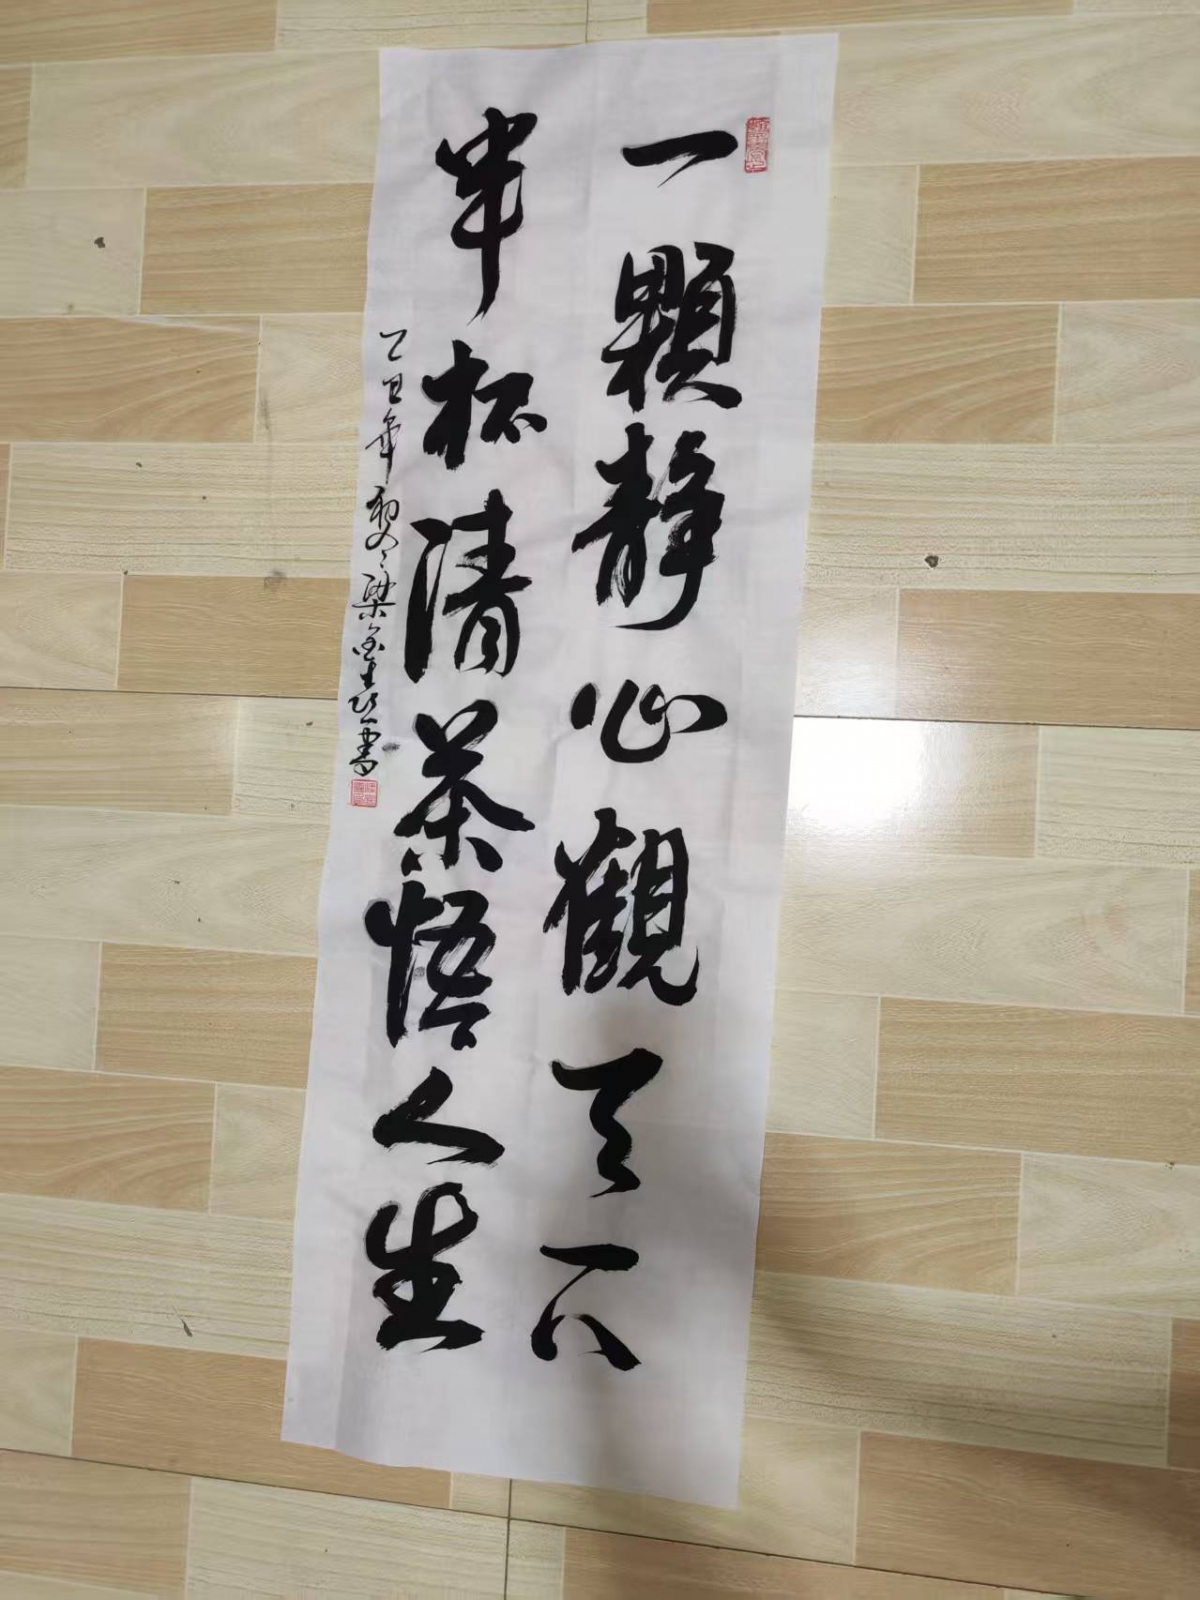 一顆静心觀天下
半杯清茶悟人生
乙巳年初冬梁金生書